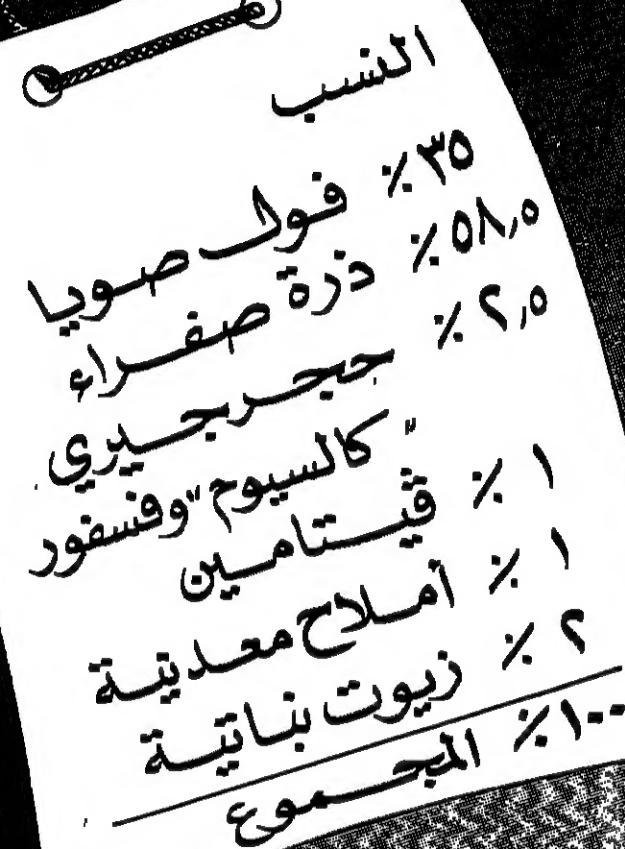 النسب
٣٥٪ فول صويا
٥٨,٥٪ ذرة صفراء
٢,٥٪ حجر جيري
"كالسيوم" وفسفور
١٪ ڤيتامين
١٪ أملاح معدنية
٢٪ زيوت نباتية
١٠٠٪ المجموع